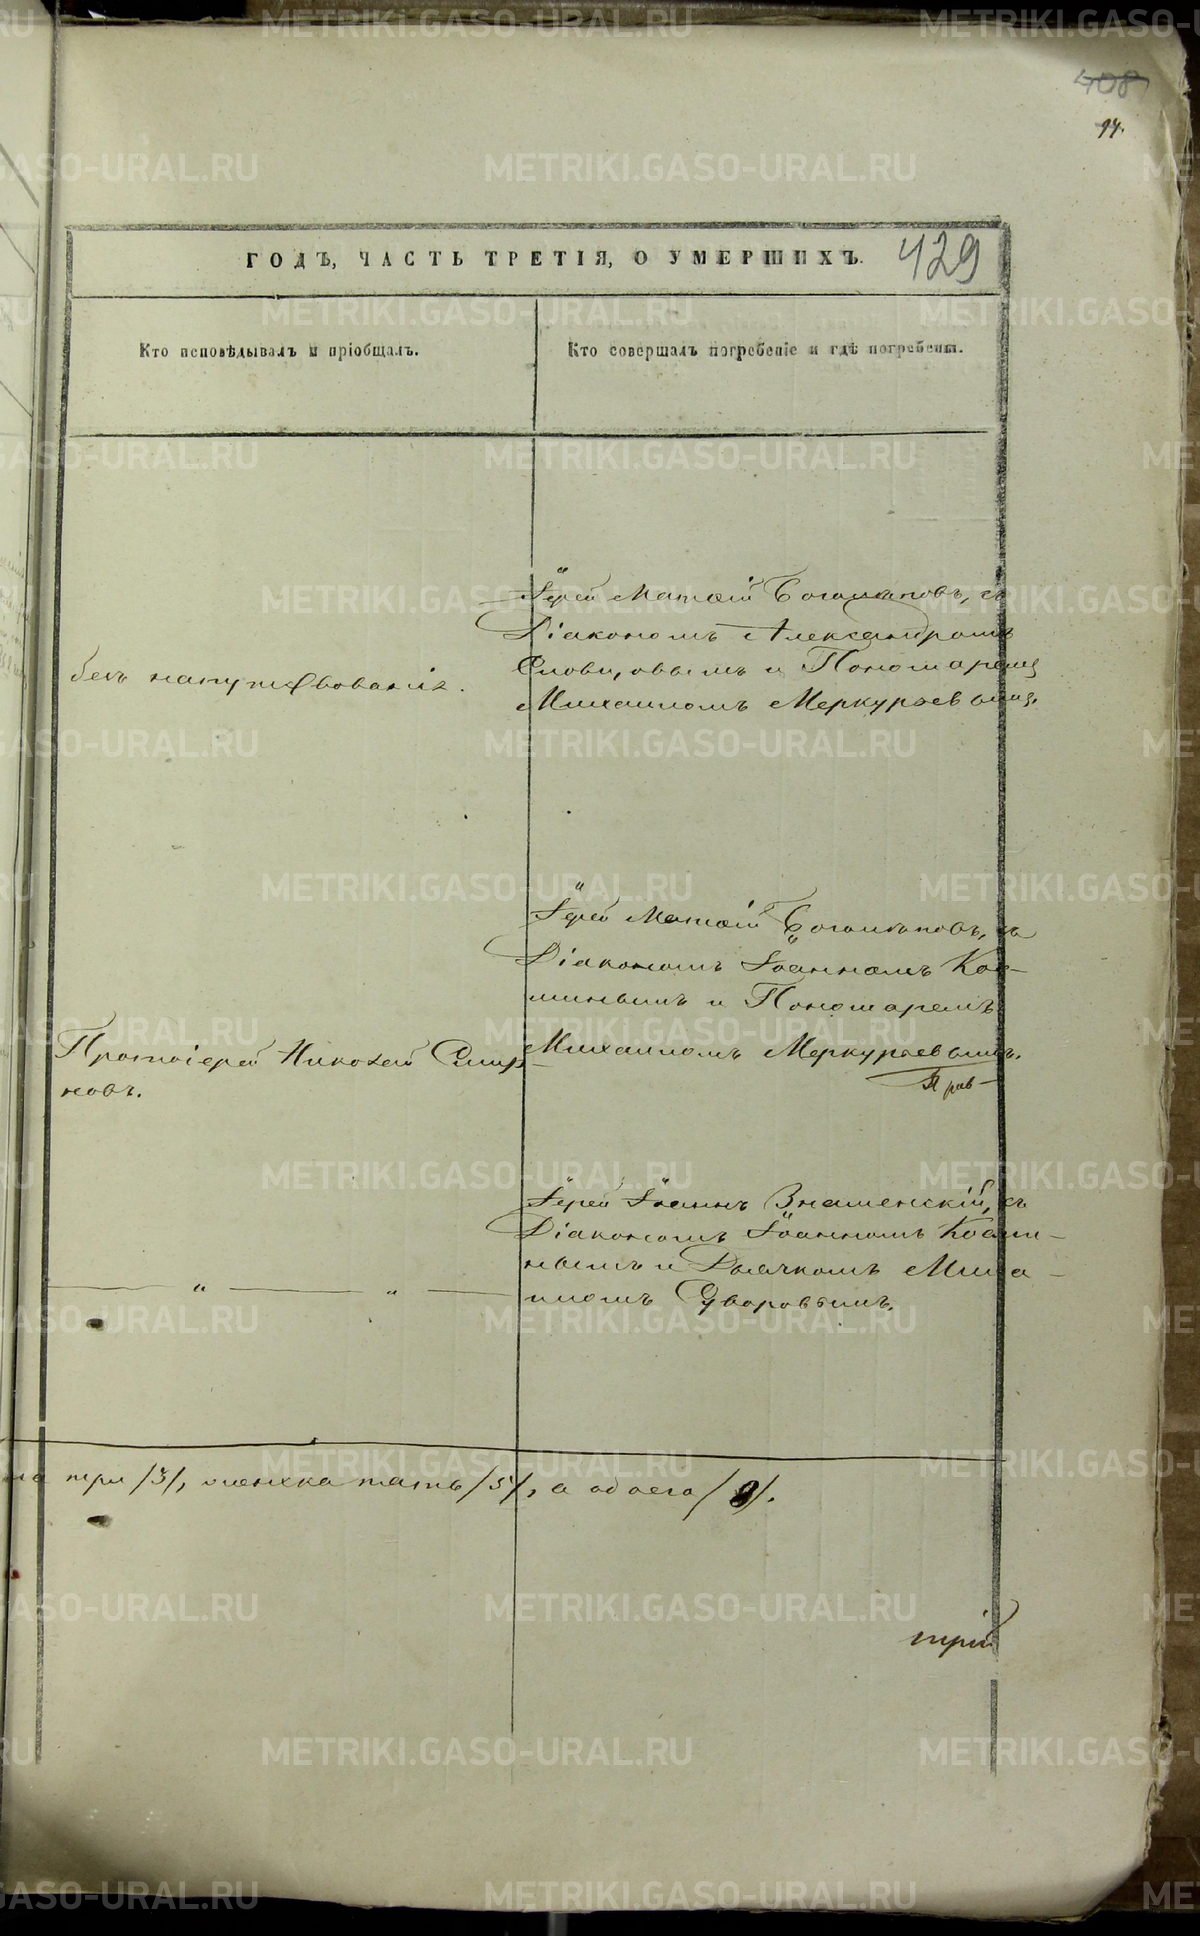 408
94.
ГОДЪ, ЧАСТЬ ТРЕТІЯ, О УМЕРШИХЪ.
429
Кто исповѣдывалъ и пріобщалъ.
Кто совершалъ погребеніе и гдѣ погребены.
безъ напутствованія.
Іерей Матѳій Богомоловъ, съ
Діакономъ Александромъ
и Пономаремъ
Михаиломъ Меркурьевымъ.
Протоіерей Николай Смир-
новъ.
Іерей Матѳій Богомоловъ, съ
Діакономъ Іоанномъ Кос-
минымъ и Пономаремъ
Михаиломъ Меркурьевымъ.
Іерей Іоаннъ Знаменскій, съ
Діакономъ Іоанномъ Косми-
нымъ и Дьячкомъ Миха-
иломъ Суворовымъ.
— " — " —
три /3/, женска пять /5/, а обоего /8/.
METRIKI.GASO-URAL.RU